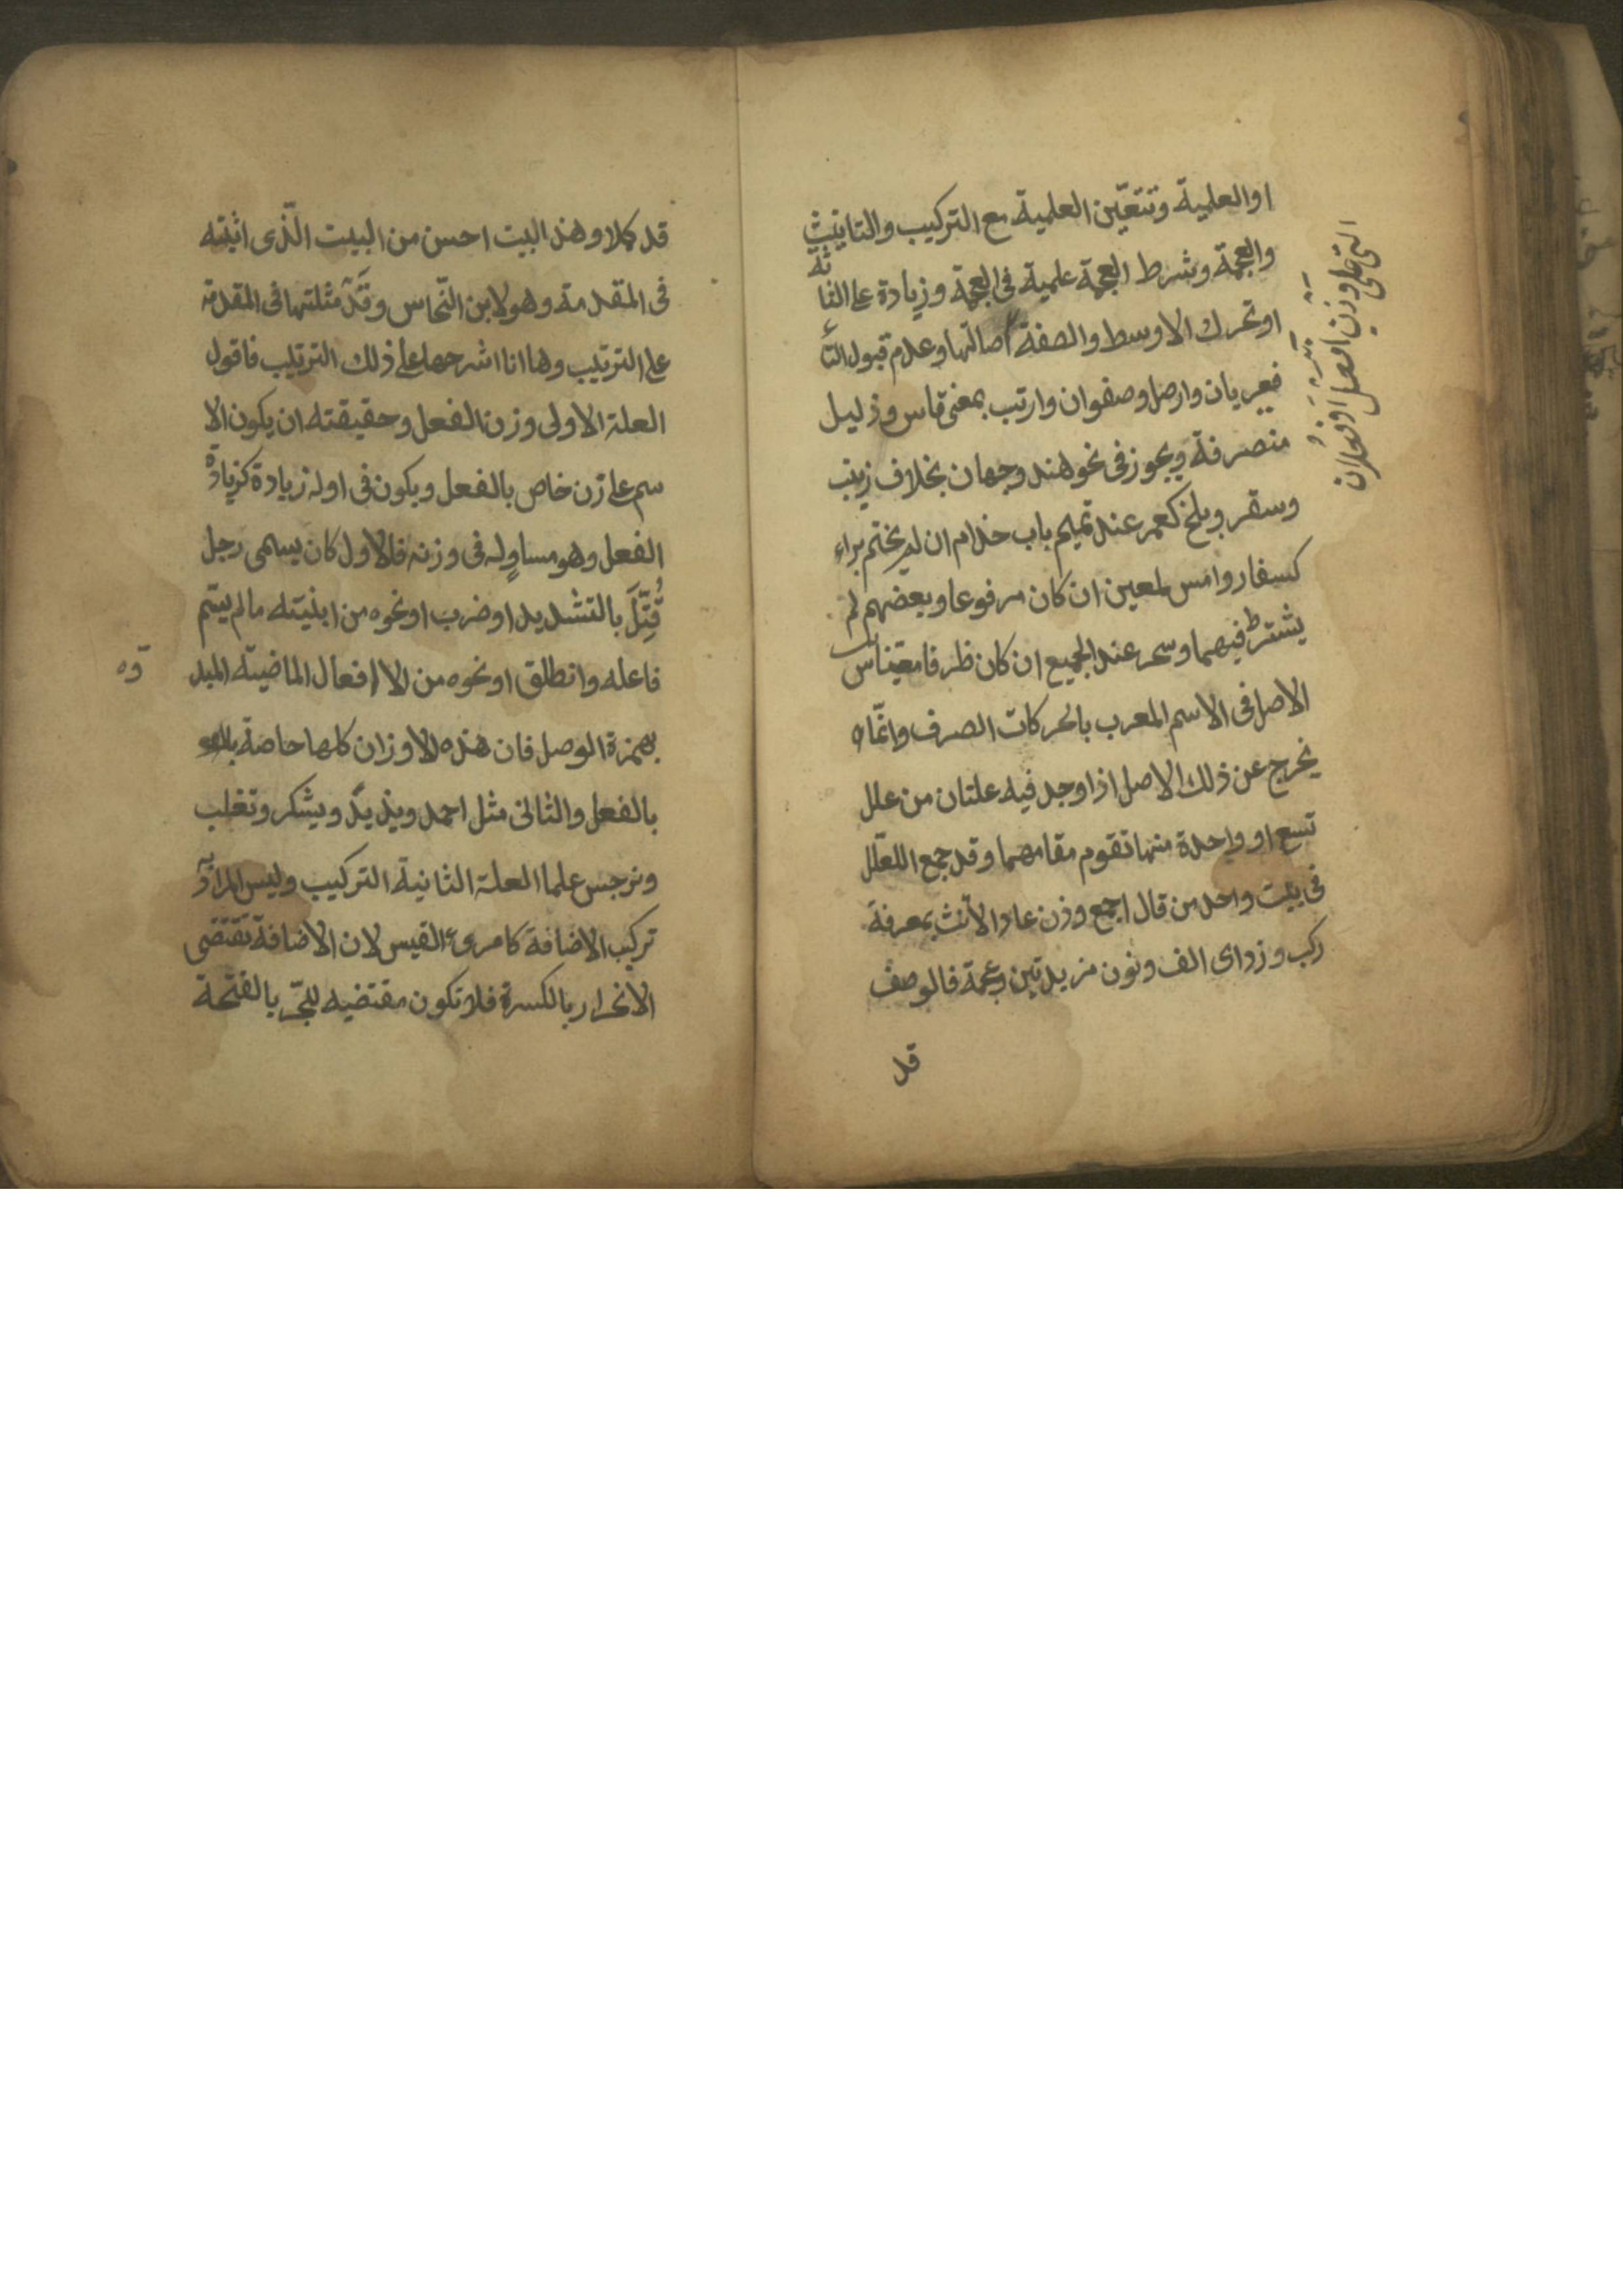 او العلمية وتتعيّن العلمية مع التركيب والتانيث
والعجمة وشرط العجمة علمية فى العجمة وزيادة على الثلا
ثة
او تحرك الاوسط والصفة اصالتها وعدم قبول التاء
فعريان وارمل وصفوان وارنب بمعنى قاس وذليل
منصرفة ويجوز فى نحو هند وجهان بخلاف زينب
وسقر وبلخ كعمر عند تميم باب حذام ان لم يختم براء
كسفار وامس لمعين ان كان مرفوعا وبعضهم لم
يشترط فيهما وسحر عند الجميع ان كان ظرفا معينا ش
الاصل فى الاسم المعرب بالحركات الصرف وانّما
يخرج عن ذلك الاصل اذا وجد فيه علتان من علل
تسع او واحدة منها تقوم مقامهما وقد جمع العلل
فى بيت واحد من قال اجمع وزن عادلا انث بمعرفة
ركب وزد اى الف ونون مزيدتين وعجمة فالوصف
قد
التى على وزن افعل او فعلان
قد كملا وهذا البيت احسن من البيت الّذى اثبته
فى المقدمة وهو لابن النّحاس وقد مثلتها فى المقدمة
على الترتيب وها انا اشرحها على ذلك الترتيب فاقول
العلة الاولى وزن الفعل وحقيقته ان يكون الا
سم على زن خاص بالفعل ويكون فى اوله زيادة كزيادة
الفعل وهو مساوٍ له فى وزنه فالاول كان يسمى رجل
قُتِّلَ بالتشديد او ضرب او نحوه من ابنيته ما لم يسم
فاعله وانطلق او نحوه من الا افعال الماضيته المبد
وه
بهمزة الوصل فان هذه الاوزان كلها خاصة
بالفعل والثانى مثل احمد ويزيد ويشكر وتغلب
ونرجس علما العلة الثانية التركيب وليس المراد
تركيب الاضافة كامرئ القيس لان الاضافة تقتضى
الانجرار بالكسرة فلا تكون مقتضيه للجّر بالفتحة